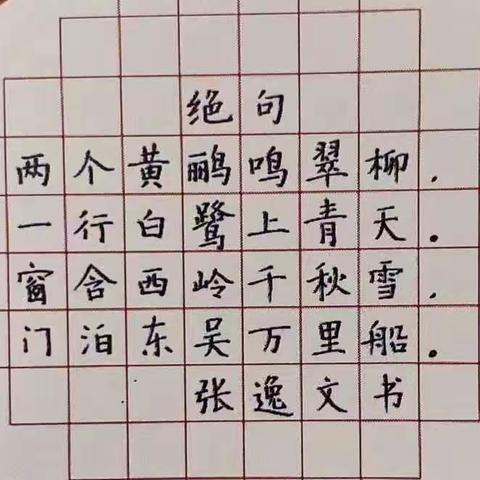 绝句
两个黄鹂鸣翠柳，
一行白鹭上青天。
窗含西岭千秋雪，
门泊东吴万里船。
张逸文书